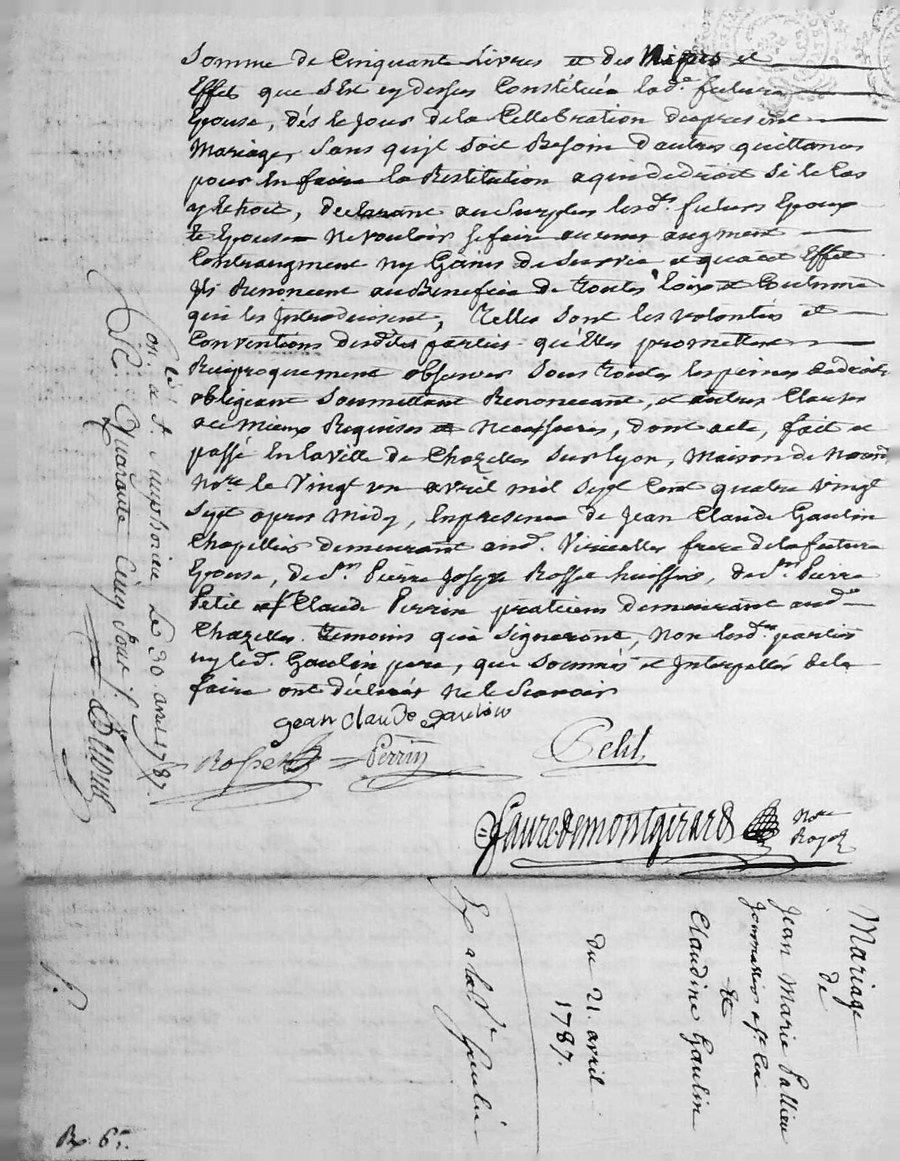 Somme de Cinquante Livres et des Nipes et
Effet que s'Est cy dessus Constituée lad.e future
Epouse, dés le Jour de la Cellebration du present
Mariage, Sans quil soit Besoin d'autres quittances
pour En faire la Restitution a qui de droit Si le Cas
y Echoit, declarant au Surplus lesd.s futurs Epoux
et Epouse Ne vouloir se faire aucuns augment
Contraugment ny Gains de Survie a quoi Effet
Ils Renoncent au Benefice de toutes loix et Coutume
qui les Introduisent, Telles sont les volontés et
Conventions desdites parties qu'Elles promettent
Reciproquement observer Sous toutes les peines de droit
obligeant Soumettant Renonceant, et autres Clauses
au mieux Requises et Necessaires, dont acte, fait et
passé En la ville de Chazelles Sur Lyon, Maison de Nous d.
No.re le Vingt un avril mil Sept Cent quatre vingt
Sept apres Midy, En presence de Jean Claude Gaulin
Chapellier demeurant aud. Viricelles frere de la future
Epouse, de S.r Pierre Joseph Rosset huissier, de S.r Pierre
Petit et Claude Perrin praticiens demeurant aud.
Chazelles temoins qui Signeront, Non lesd. parties
ny led. Gaulin pere, que Sommés et Interpellés de le
faire ont déclarés Ne le Scavoir
Jean Claude Gaulin
Rosset
Perrin
Petit
Faure de montgirard
No.re
Royal
Con.lé a S.t Simphorien Le 30. avril 1787.
R. Quarante Cinq Sous
Mariage
de
Jean Marie
Journalier
&
Claudine Gaulin
Du 21. avril
1787.
Ex a lad.
65.